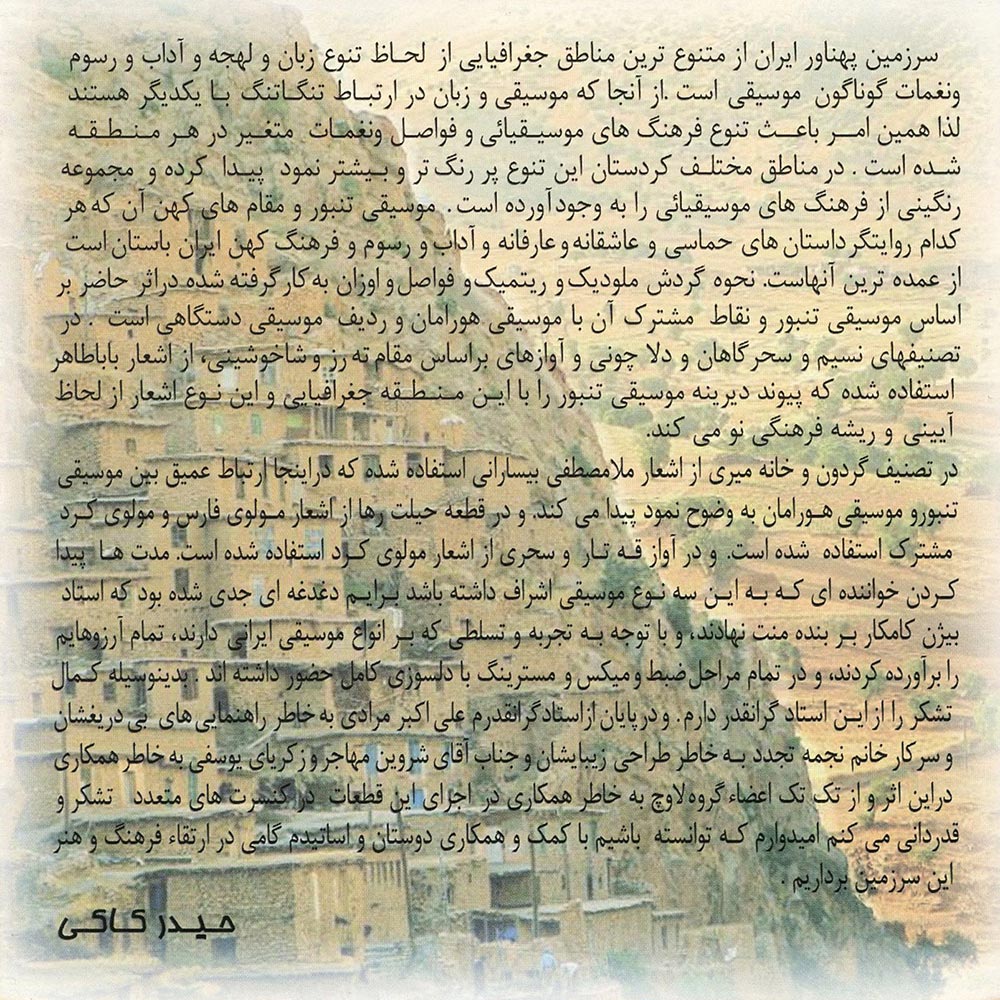 سرزمین پهناور ایران از متنوع ترین مناطق جغرافیایی از لحاظ تنوع زبان و لهجه و آداب و رسوم
ونغمات گوناگون موسیقی است .از آنجا که موسیقی و زبان در ارتباط تنگاتنگ با یکدیگر هستند
لذا همین امر باعث تنوع فرهنگ های موسیقیائی و فواصل ونغمات متغیر در هر منطقه
شده است . در مناطق مختلف کردستان این تنوع پر رنگ تر و بیشتر نمود پیدا کرده و مجموعه
رنگینی از فرهنگ های موسیقیائی را به وجود آورده است . موسیقی تنبور و مقام های کهن آن که هر
کدام روایتگر داستان های حماسی و عاشقانه و عارفانه و آداب و رسوم و فرهنگ کهن ایران باستان است
از عمده ترین آنهاست. نحوه گردش ملودیک و ریتمیک و فواصل و اوزان به کار گرفته شده دراثر حاضر بر
اساس موسیقی تنبور و نقاط مشترک آن با موسیقی هورامان و ردیف موسیقی دستگاهی است . در
تصنیفهای نسیم و سحرگاهان و دلا چونی و آوازهای براساس مقام ته رز و شاخوشینی، از اشعار باباطاهر
استفاده شده که پیوند دیرینه موسیقی تنبور را با این منطقه جغرافیایی و این نوع اشعار از لحاظ
آیینی و ریشه فرهنگی نو می کند.
در تصنیف گردون و خانه میری از اشعار ملامصطفی بیسارانی استفاده شده که دراینجا ارتباط عمیق بین موسیقی
تنبورو موسیقی هورامان به وضوح نمود پیدا می کند. و در قطعه حیلت رها از اشعار مولوی فارس و مولوی کرد
مشترک استفاده شده است. و در آواز قه تار و سحری از اشعار مولوی کرد استفاده شده است. مدت ها پیدا
کردن خواننده ای که به این سه نوع موسیقی اشراف داشته باشد برایم دغدغه ای جدی شده بود که استاد
بیژن کامکار بر بنده منت نهادند، و با توجه به تجربه و تسلطی که بر انواع موسیقی ایرانی دارند، تمام آرزوهایم
را برآورده کردند، و در تمام مراحل ضبط و میکس و مسترینگ با دلسوزی کامل حضور داشته اند . بدینوسیله کمال
تشکر را از این استاد گرانقدر دارم . و در پایان ازاستاد گرانقدرم علی اکبر مرادی به خاطر راهنمایی های بی دریغشان
و سرکار خانم نجمه تجدد به خاطر طراحی زیبایشان و جناب آقای شروین مهاجر و زکریای یوسفی به خاطر همکاری
دراین اثر و از تک تک اعضاء گروه لاوچ به خاطر همکاری در اجرای این قطعات در کنسرت های متعدد تشکر و
قدردانی می کنم امیدوارم که توانسته باشیم با کمک و همکاری دوستان و اساتیدم گامی در ارتقاء فرهنگ و هنر
این سرزمین برداریم .
حیدر کاکی